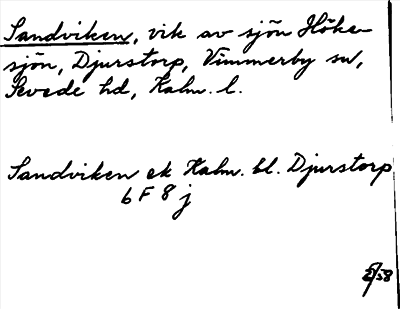 Sandviken, vik av sjön Höke-
sjön, Djurstorp, Vimmerby sn,
Sevede hd, Kalm. l.
Sandviken ek Kalm. bl. Djurstorp
6 F 8 j